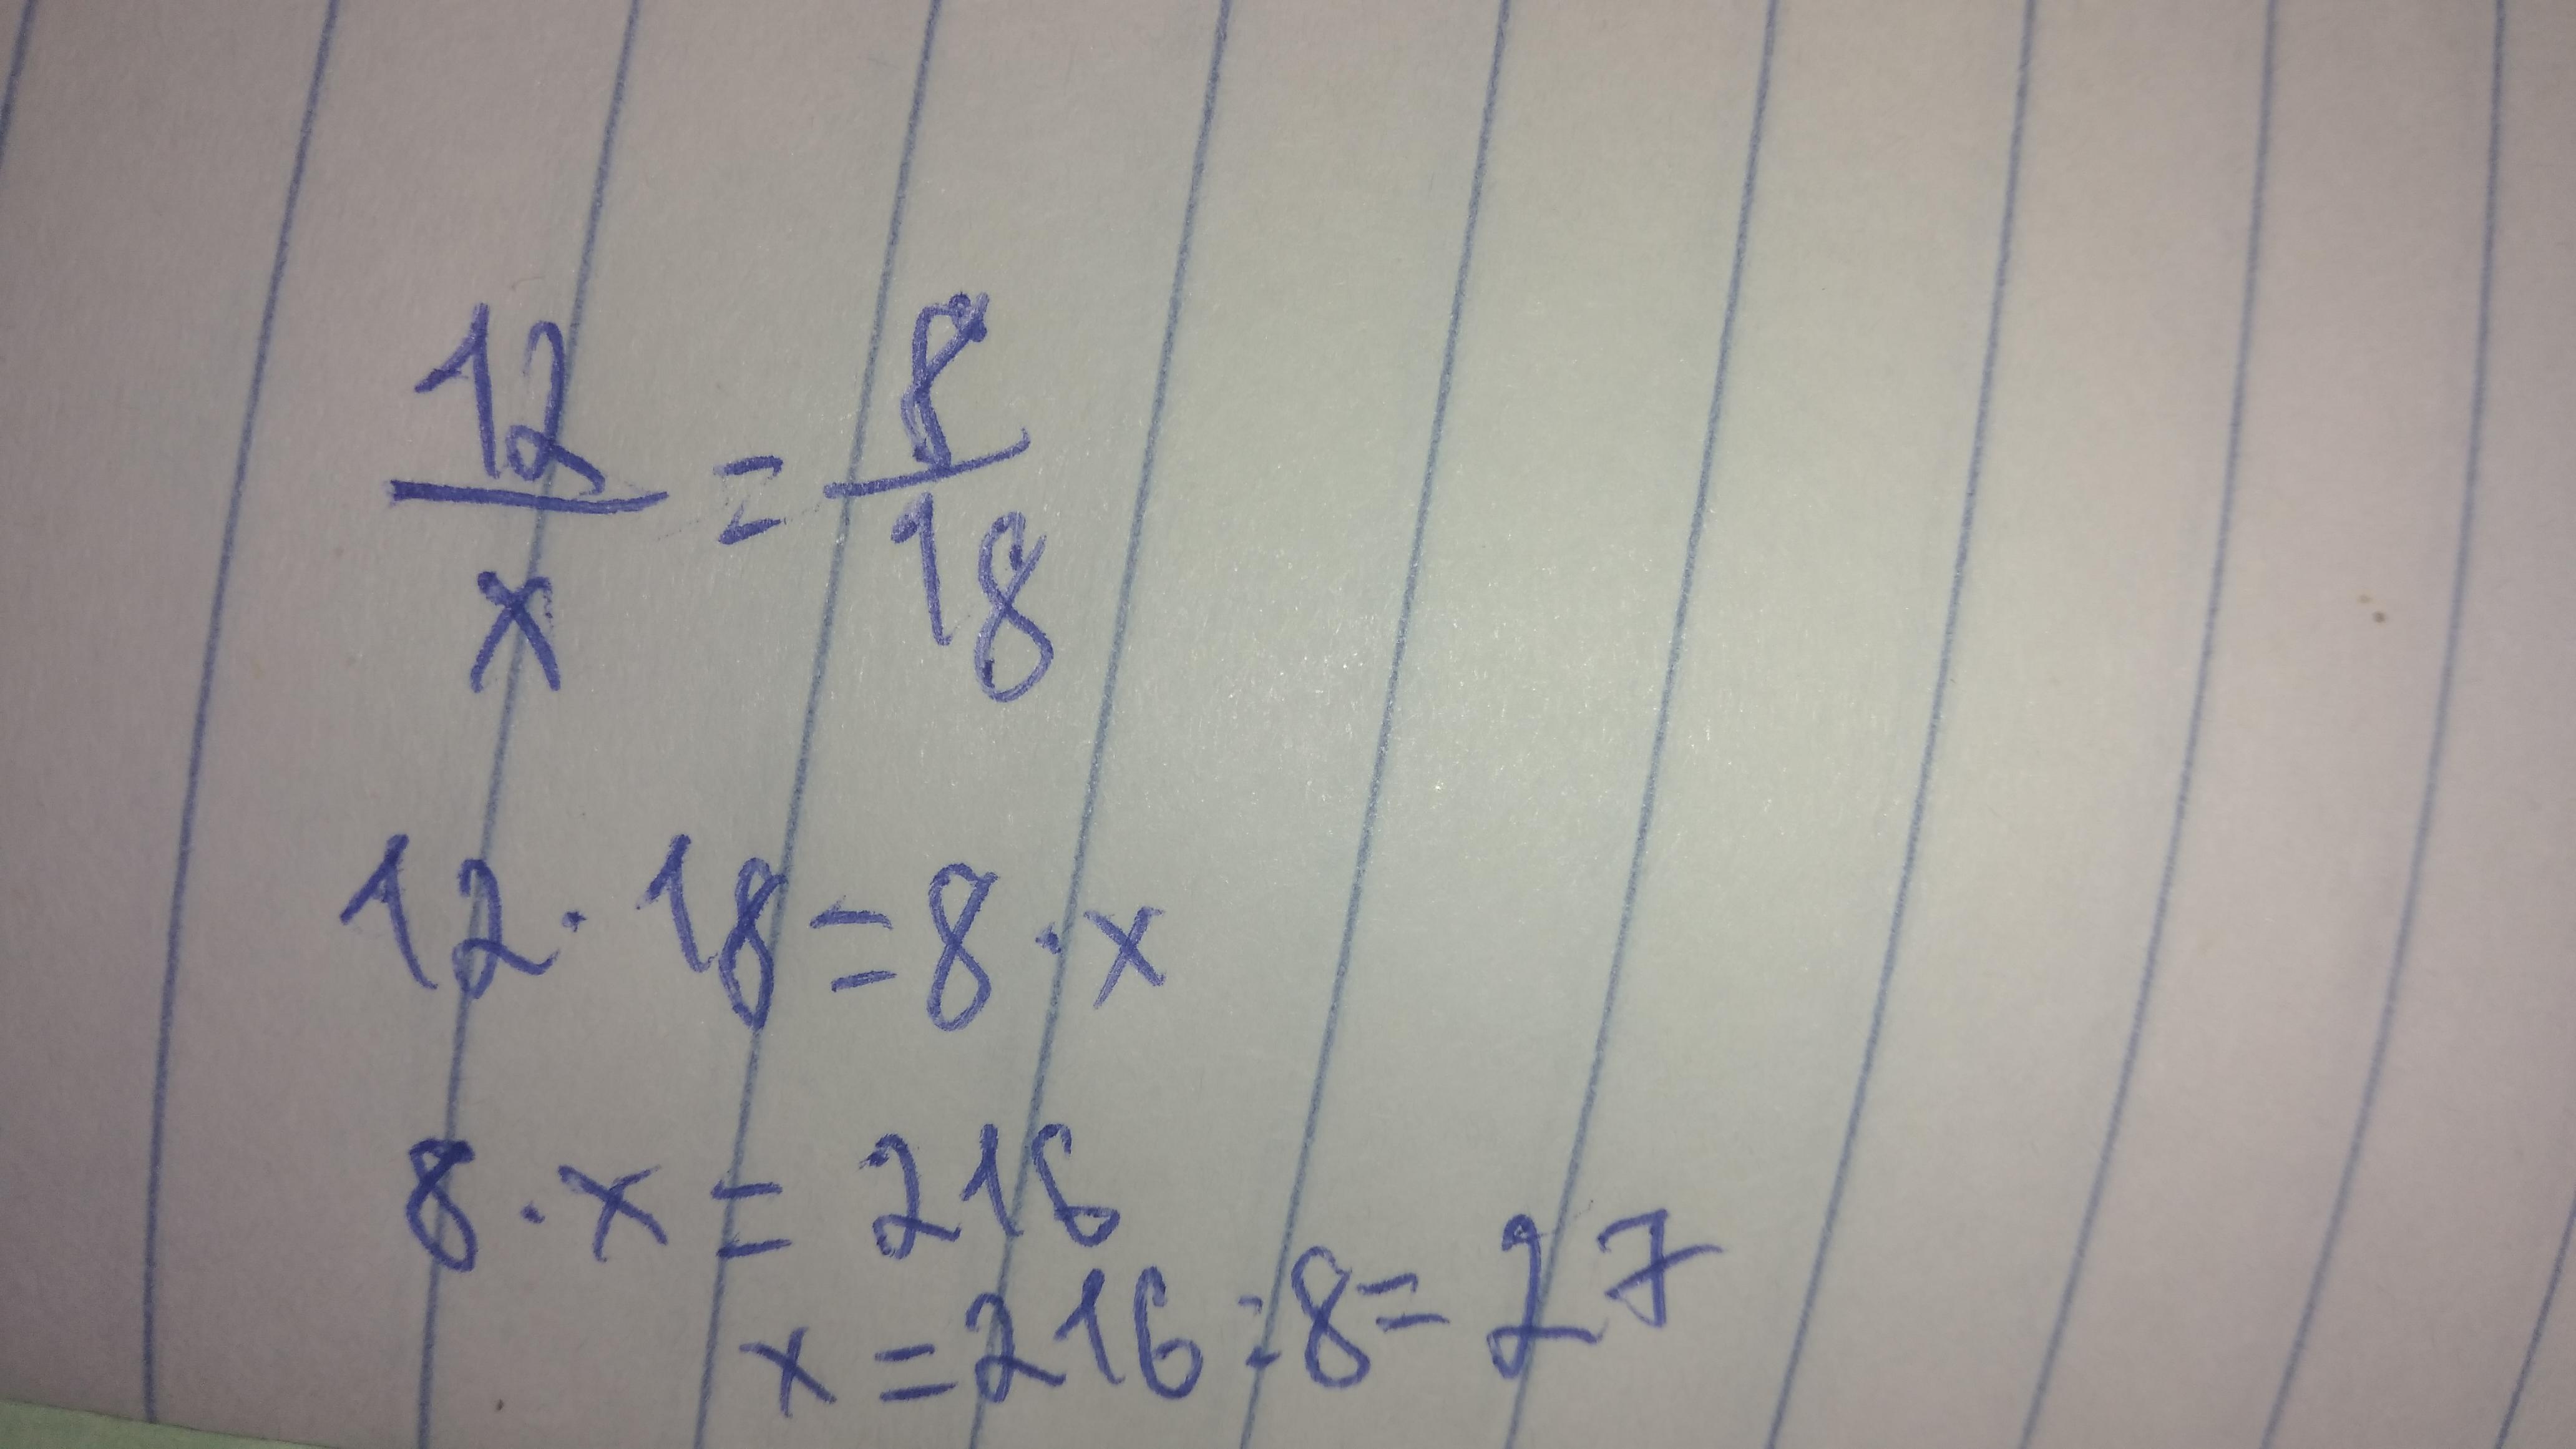 12/x = 8/18
12 · 18 = 8 · x
8 · x = 216
x = 216 : 8 = 27